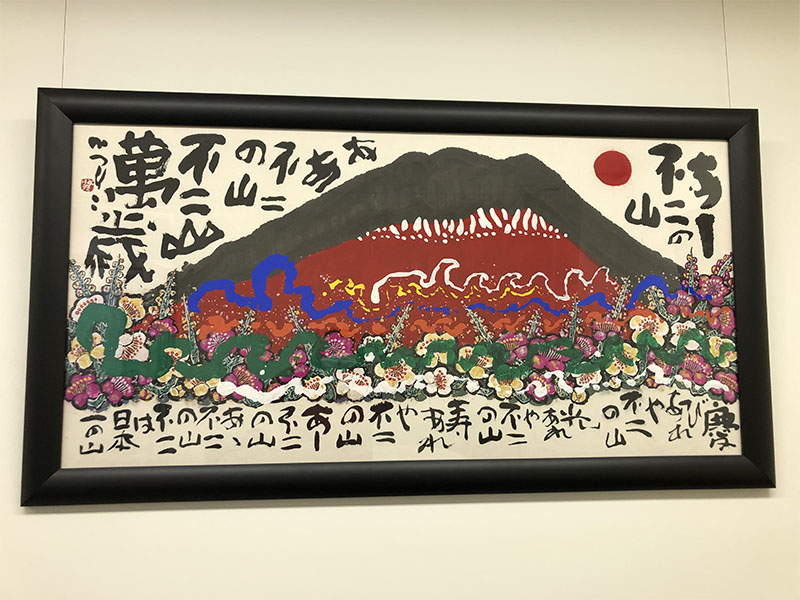 あー
不二の
山
ああ
不二
の山
不二山
萬歳
慶
び
あれ
や
不二
の山
光
あれ
や
不二
の山
寿
あれ
や
不二
の山
あー
不二
の山
あゝ
不二
の山
不二
は
日本
一の山